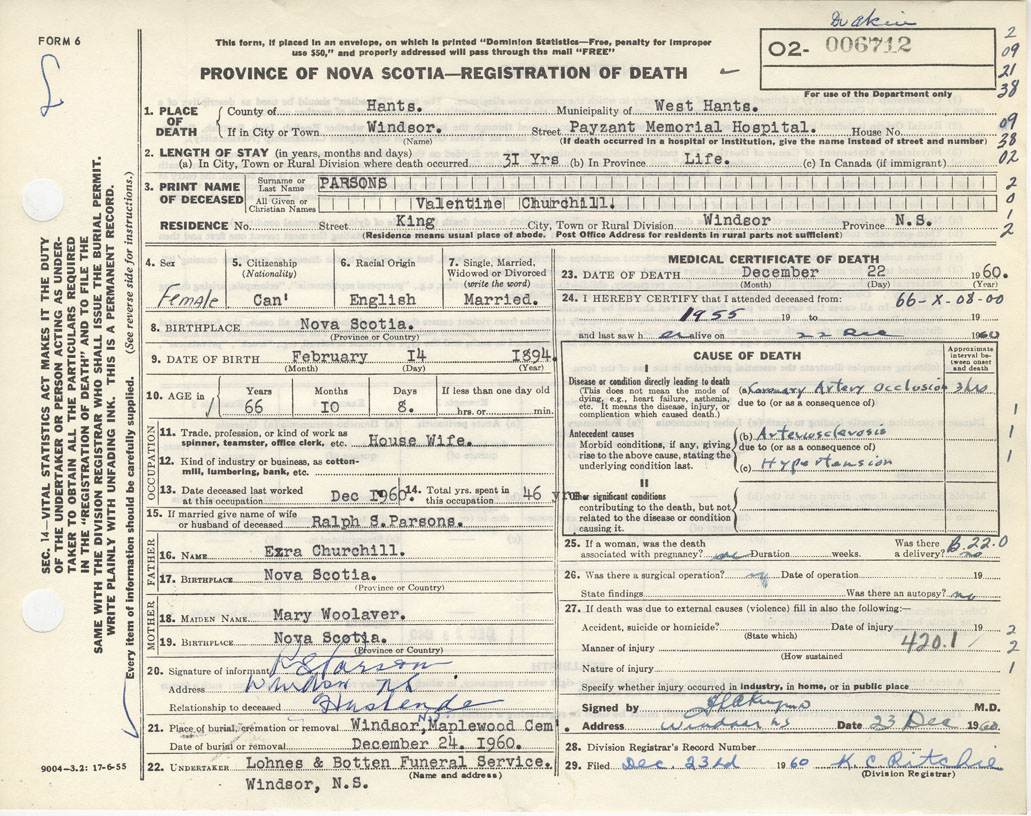 Deakin
FORM 6
This form, if placed in an envelope, on which is printed "Dominion Statistics—Free, penalty for improper
use $50," and properly addressed will pass through the mail "FREE"
PROVINCE OF NOVA SCOTIA—REGISTRATION OF DEATH
O2- 006712
For use of the Department only
2
09
21
38
09
38
02
2
0
1
2
1. PLACE OF DEATH
County of Hants. Municipality of West Hants.
If in City or Town Windsor. Street Payzant Memorial Hospital. House No.
(Name) (If death occurred in a hospital or institution, give the name instead of street and number)
2. LENGTH OF STAY (in years, months and days)
(a) In City, Town or Rural Division where death occurred 31 Yrs (b) In Province Life. (c) In Canada (if immigrant)
3. PRINT NAME OF DECEASED
Surname or Last Name PARSONS
All Given or Christian Names Valentine Churchill.
RESIDENCE No. Street King City, Town or Rural Division Windsor Province N.S.
(Residence means usual place of abode. Post Office Address for residents in rural parts not sufficient)
4. Sex
Female
5. Citizenship
(Nationality)
Can'
6. Racial Origin
English
7. Single, Married,
Widowed or Divorced
(write the word)
Married.
8. BIRTHPLACE Nova Scotia.
(Province or Country)
9. DATE OF BIRTH February 14 1894.
(Month) (Day) (Year)
10. AGE in
Years Months Days If less than one day old
66 10 8. hrs. or min.
OCCUPATION
11. Trade, profession, or kind of work as
spinner, teamster, office clerk, etc. House Wife.
12. Kind of industry or business, as cotton-
mill, lumbering, bank, etc.
13. Date deceased last worked
at this occupation Dec 1960.
14. Total yrs. spent in
this occupation 46 yrs
15. If married give name of wife
or husband of deceased Ralph S.Parsons.
FATHER
16. NAME Ezra Churchill.
17. BIRTHPLACE Nova Scotia.
(Province or Country)
MOTHER
18. MAIDEN NAME Mary Woolaver.
19. BIRTHPLACE Nova Scotia.
(Province or Country)
20. Signature of informant R S Parsons
Address Windsor NS
Relationship to deceased Husband
21. Place of burial, cremation or removal Windsor, NS, Maplewood Cem
Date of burial or removal December 24. 1960.
22. UNDERTAKER Lohnes & Botten Funeral Service.
(Name and address)
Windsor, N.S.
MEDICAL CERTIFICATE OF DEATH
23. DATE OF DEATH December 22 1960.
(Month) (Day) (Year)
24. I HEREBY CERTIFY that I attended deceased from: 66-X-08-00
1955 19 to 19
and last saw h er alive on 22 Dec 1960
CAUSE OF DEATH
Approximate
interval be-
tween onset
and death
I
Disease or condition directly leading to death
(This does not mean the mode of
dying, e.g., heart failure, asthenia,
etc. It means the disease, injury, or
complication which caused death.)
(a) Coronary Artery Occlusion 3 hrs
due to (or as a consequence of)
Antecedent causes
Morbid conditions, if any, giving
rise to the above cause, stating the
underlying condition last.
(b) Arteriosclerosis
due to (or as a consequence of)
(c) Hypertension
1
1
1
II
Other significant conditions
contributing to the death, but not
related to the disease or condition
causing it.
25. If a woman, was the death
associated with pregnancy? no Duration weeks.
Was there
a delivery? no
B.22.0
26. Was there a surgical operation? Date of operation 19
State findings Was there an autopsy? no
27. If death was due to external causes (violence) fill in also the following:—
Accident, suicide or homicide? Date of injury 19
(State which)
Manner of injury 420.1
(How sustained
Nature of injury
2
2
1
Specify whether injury occurred in industry, in home, or in public place
Signed by M.D.
Address Windsor NS Date 23 Dec 1960.
28. Division Registrar's Record Number
29. Filed Dec. 23rd 1960 K C Ritchie
(Division Registrar)
SEC. 14—VITAL STATISTICS ACT MAKES IT THE DUTY
OF THE UNDERTAKER OR PERSON ACTING AS UNDER-
TAKER TO OBTAIN ALL THE PARTICULARS REQUIRED
IN THE "REGISTRATION OF DEATH" AND TO FILE THE
SAME WITH THE DIVISION REGISTRAR WHO SHALL ISSUE THE BURIAL PERMIT.
WRITE PLAINLY WITH UNFADING INK. THIS IS A PERMANENT RECORD.
Every item of information should be carefully supplied. (See reverse side for instructions.)
9004–3.2: 17-6-55